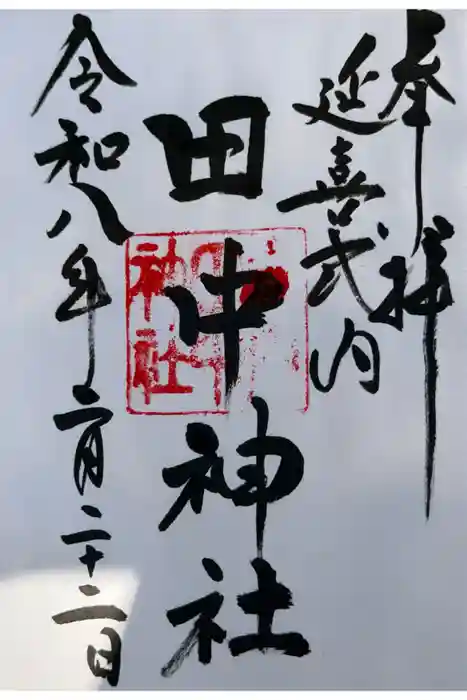 奉拝
延喜式内
田中神社
令和八年二月二十二日
神社